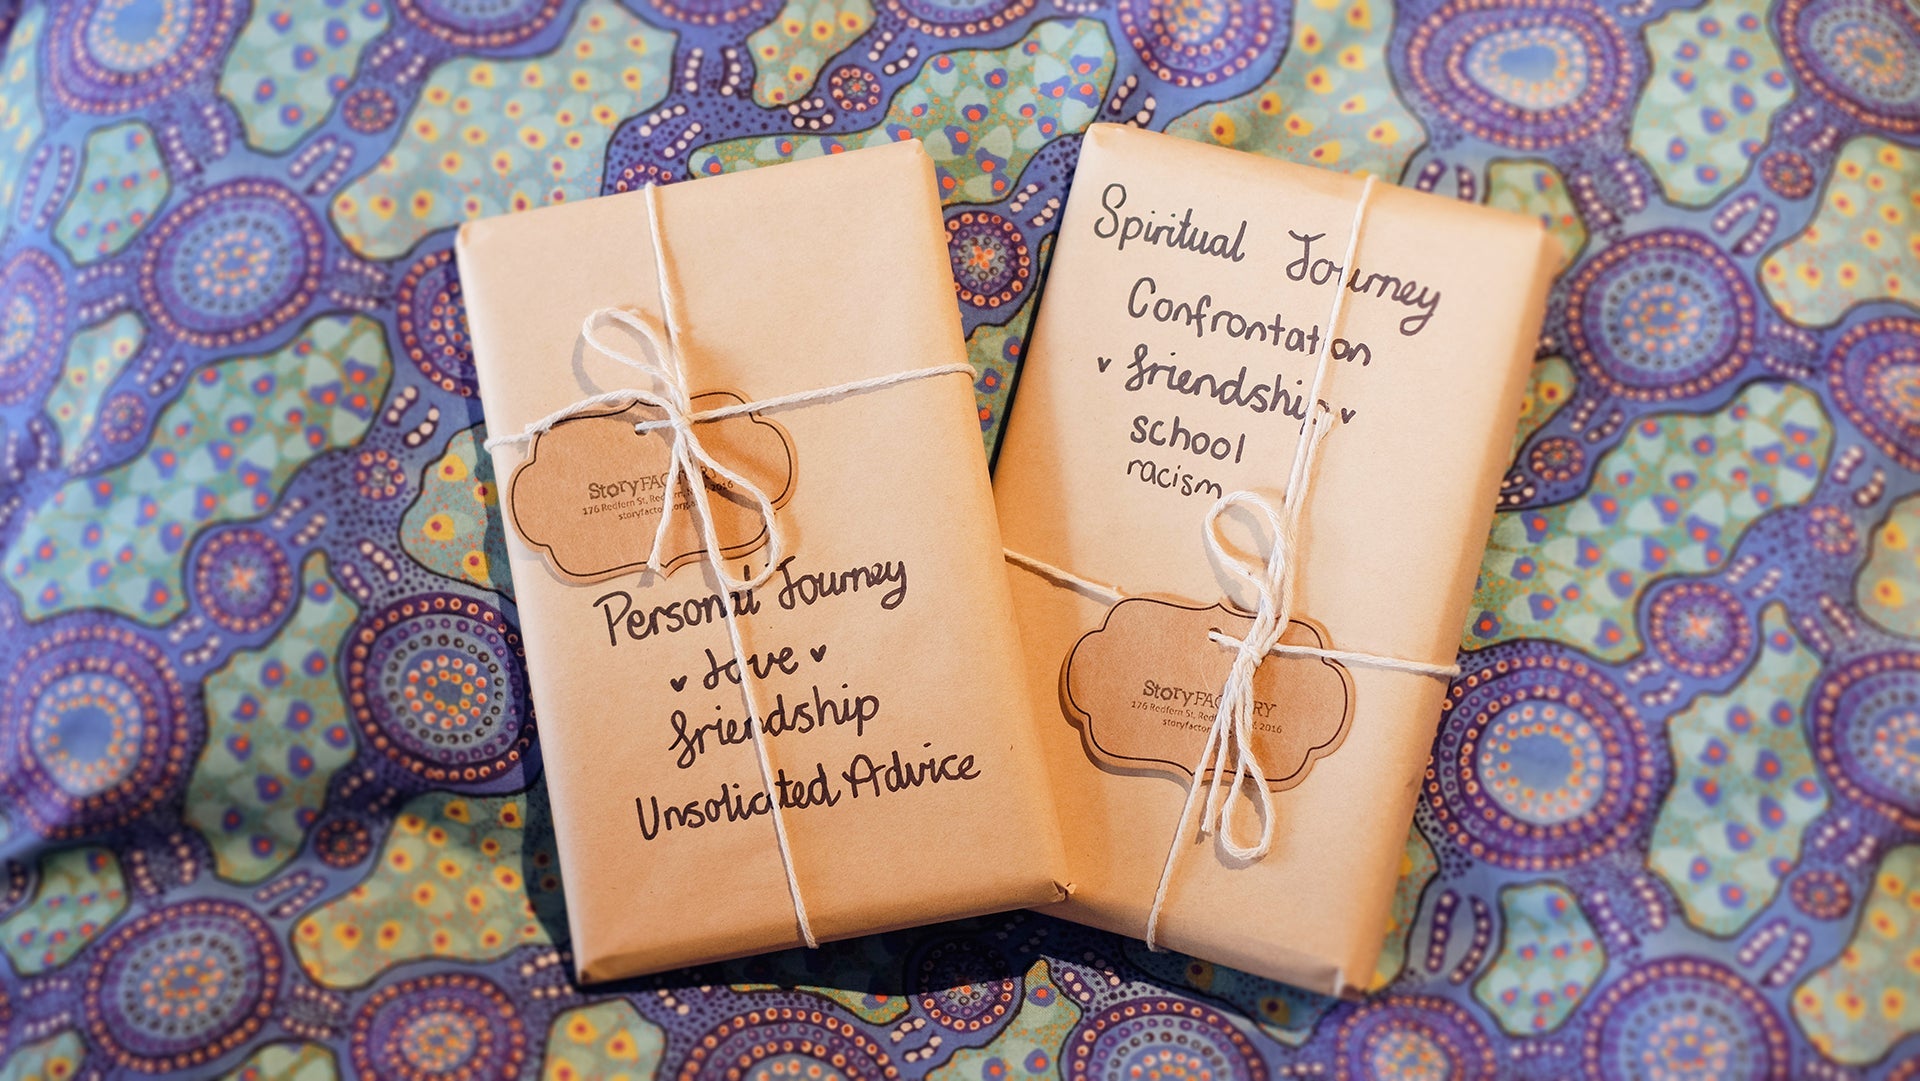 StoryFACTORY
176 Redfern St, Redfern, 2016
storyfactory.org.au
Personal Journey
Love
friendship
Unsolicated Advice
Spiritual Journey
Confrontation
friendship
school
racism
StoryFACTORY
176 Redfern St, Redfern, 2016
storyfactory